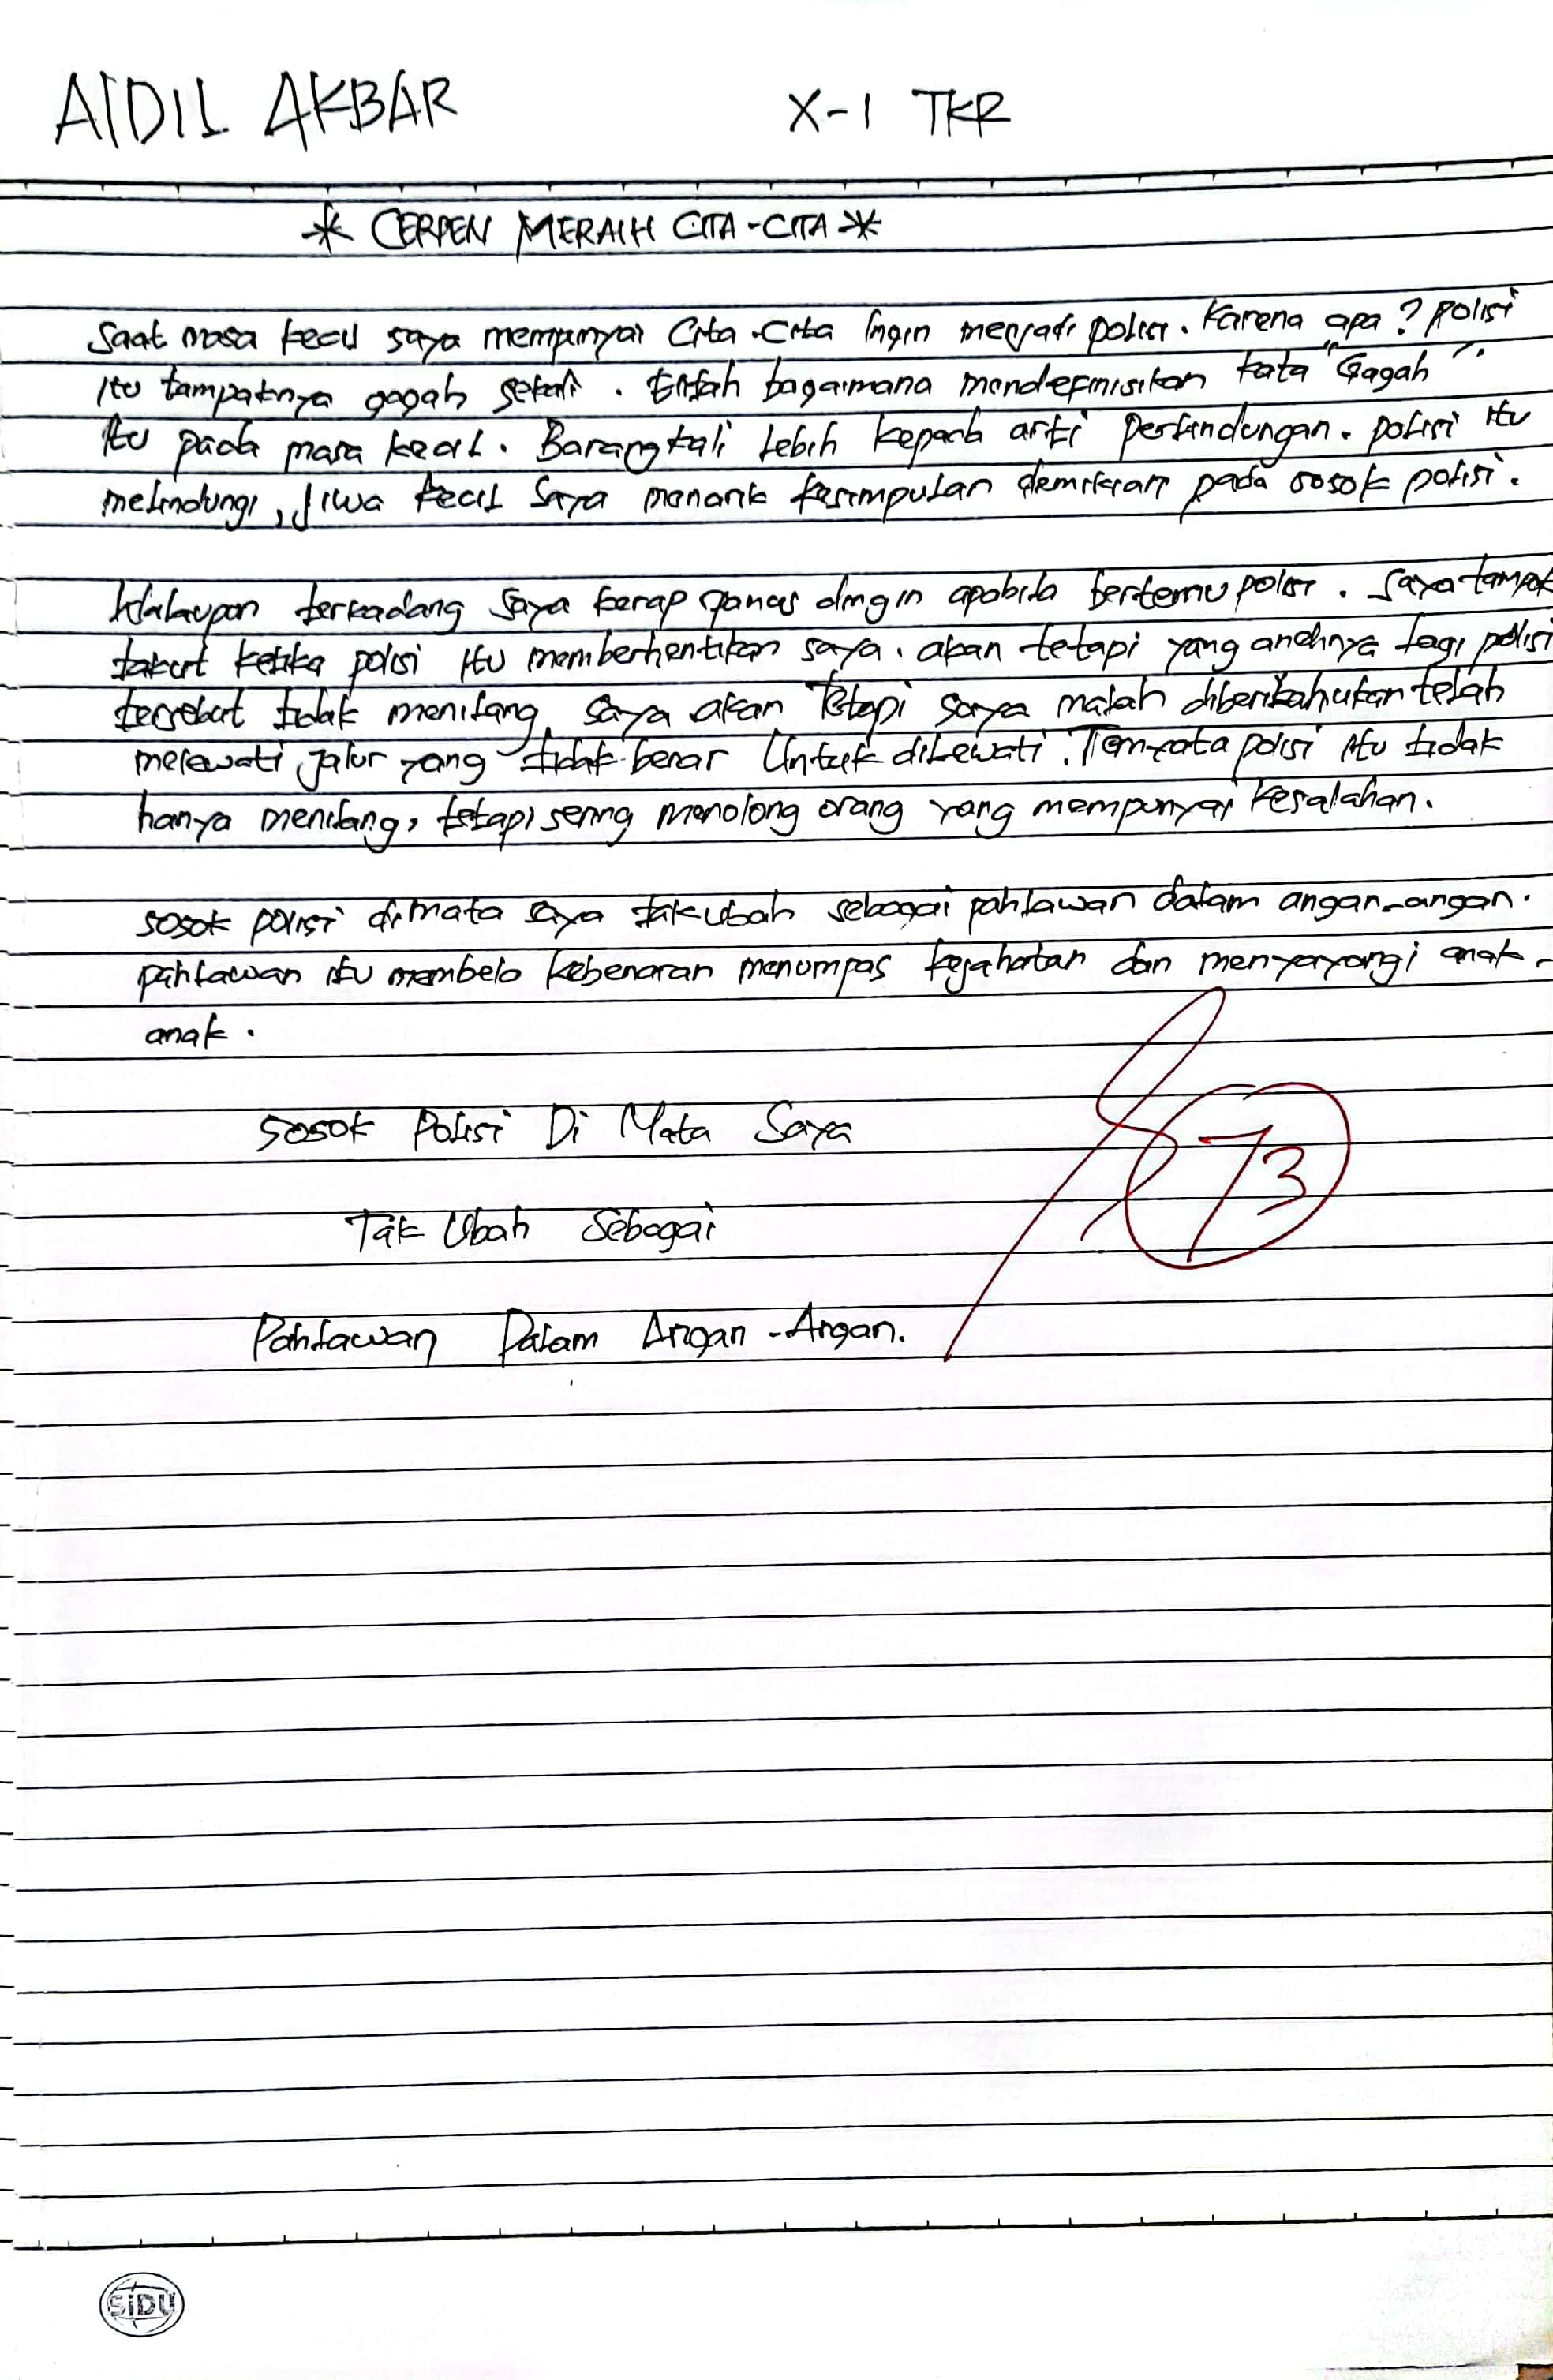 AIDIL AKBAR X-1 TKR
* CERPEN MERAIH CITA-CITA *
Saat masa kecil saya mempunyai Cita-Cita Ingin menjadi polisi. Karena apa? polisi
itu tampaknya gagah sekali. Entah bagaimana mendefinisikan kata "Gagah".
itu pada masa kecil. Barangkali Lebih kepada arti perlindungan. polisi itu
melindungi, Jiwa kecil saya menarik kesimpulan demikian pada sosok polisi.
Walaupun terkadang saya kerap panas dingin apabila bertemu polisi. saya tampak
takut ketika polisi itu memberhentikan saya. akan tetapi yang anehnya lagi polisi
tersebut tidak menilang, saya akan Tetapi saya malah diberitahukan telah
melewati jalur yang tidak benar Untuk diLewati. Ternyata polisi itu tidak
hanya menilang, tetapi sering menolong orang yang mempunyai kesalahan.
sosok polisi dimata saya takubah sebagai pahlawan dalam angan-angan.
pahlawan itu membela kebenaran menumpas kejahatan dan menyayangi anak-
anak.
Sosok Polisi Di Mata Saya
Tak Ubah Sebagai
Pahlawan Dalam Angan-Angan.
73
SIDU